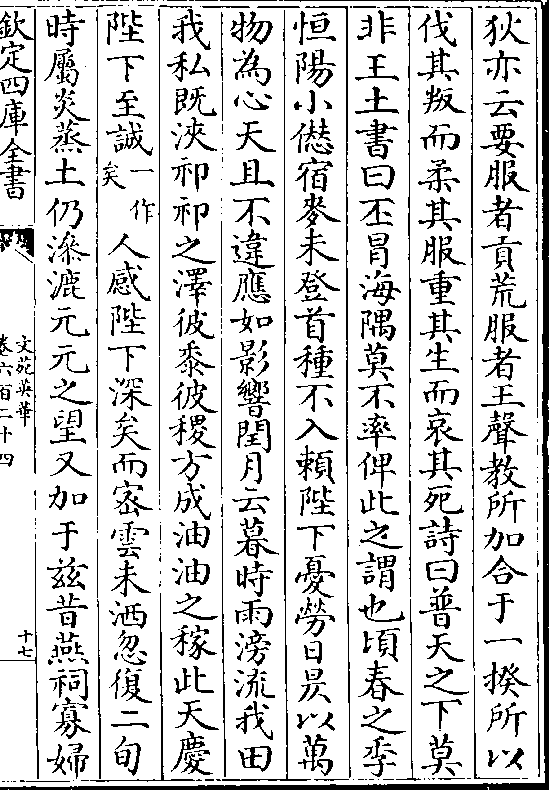 狄亦云要服者貢荒服者王聲教所加合于一揆所以
伐其叛而柔其服重其生而哀其死詩曰普天之下莫
非王土書曰丕冒海隅莫不率俾此之謂也頃春之季
恒陽小愆宿麥未登首種不入賴陛下憂勞日昃以萬
物為心天且不違應如影響閏月云暮時雨滂流我田
我私既浹祁祁之澤彼黍彼稷方成油油之稼此天慶
陛下至誠一作矣人感陛下深矣而密雲未洒忽復二旬
時屬炎蒸土仍滲漉元元之望又加于兹昔燕祠寡婦
欽定四庫全書
文苑英華
卷六百二十四
十七